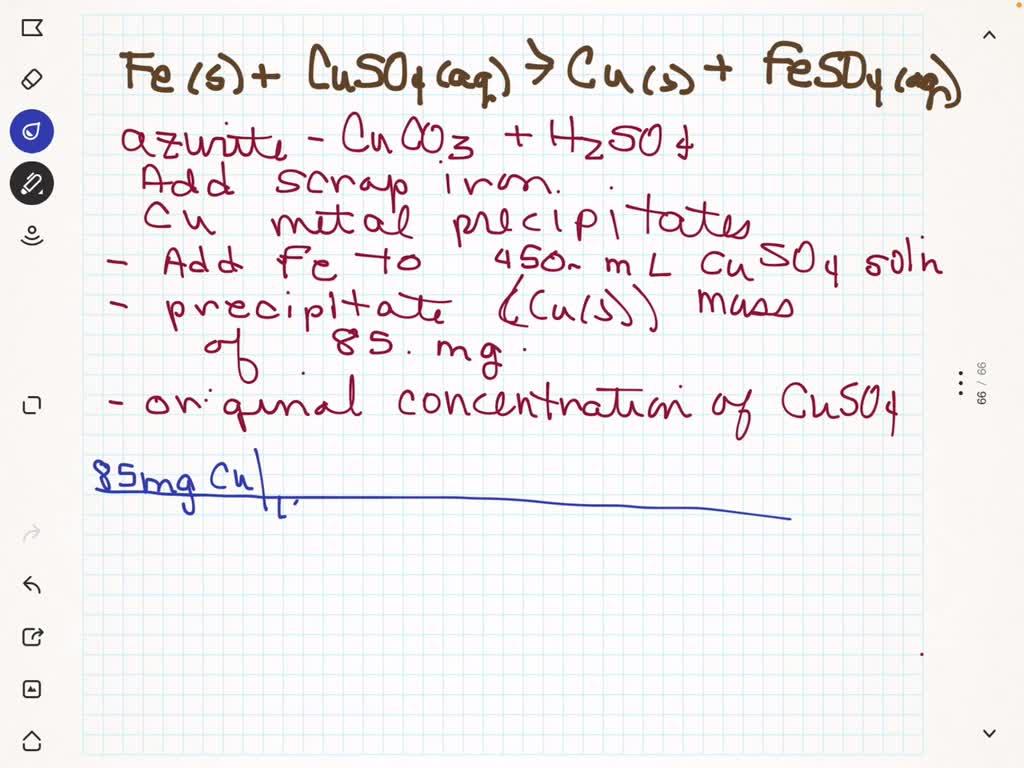 Fe(s) + CuSO4(aq) → Cu(s) + FeSO4(aq)
azurite - CuCO3 + H2SO4
Add scrap iron.
Cu metal precipitates
- Add Fe to 450. mL CuSO4 soln
- precipitate (Cu(s)) mass
of 85. mg.
- original concentration of CuSO4
85mg Cu
99 / 99